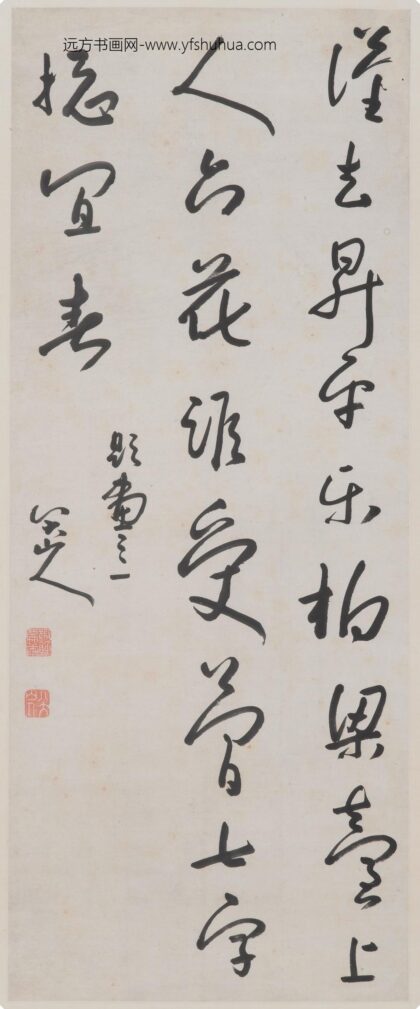 远方书画网-www.yfshuhua.com
去昇平乐柏梁臺上
人花受七字
揔宜春
題畫之一
八大山人